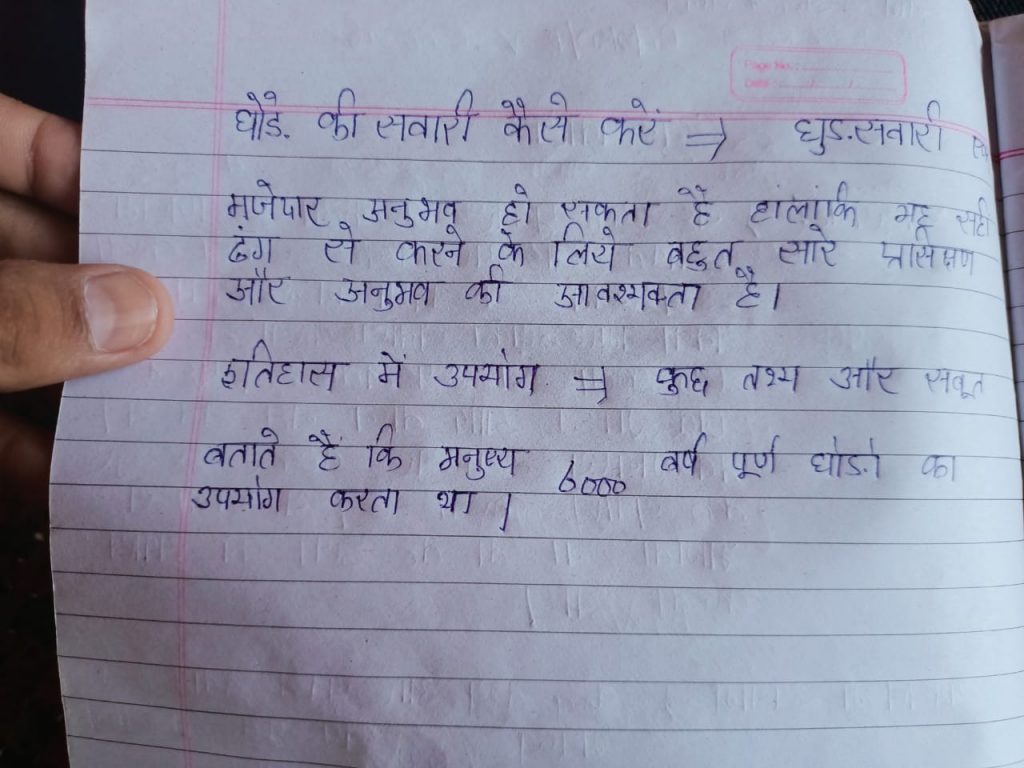 Page No.
Date
घोडे़ की सवारी कैसे करें ⇒ घुड़सवारी
मजेदार अनुभव हो सकता है हालांकि यह सही
ढंग से करने के लिये बहुत सारे प्रसिक्षण
और अनुभव की आवश्यकता है।
इतिहास में उपयोग ⇒ कुछ तथ्य और सबूत
बताते हैं कि मनुष्य 6000 वर्ष पूर्ण घोड़ो का
उपयोग करता था।